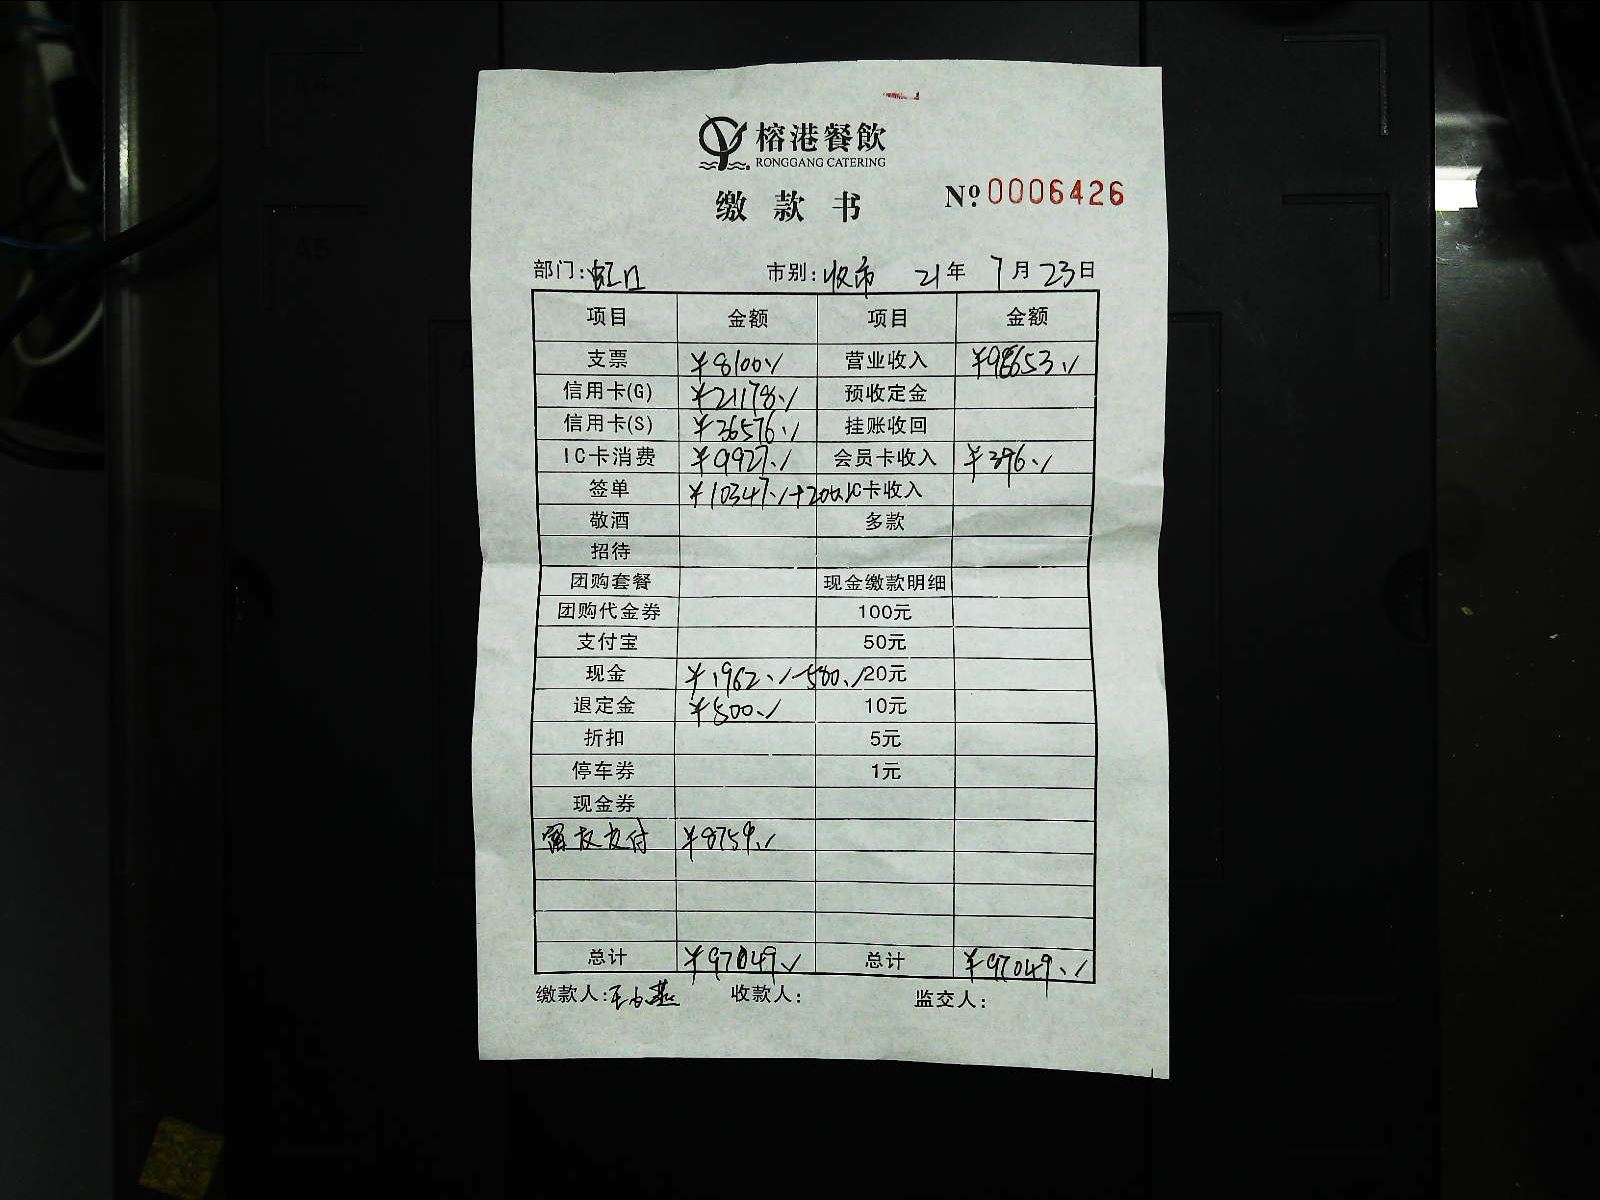 榕港餐飲
RONGGANG CATERING
缴款书 Nº 0006426
部门:虹口 市别:收市 21年7月23日
项目 金额 项目 金额
支票 ¥8100./ 营业收入
信用卡(G) ¥21178./ 预收定金
信用卡(S) ¥36576./ 挂账收回
IC卡消费 ¥9927./ 会员卡收入 ¥396./
签单 ¥10347./+ IC卡收入
敬酒 多款
招待
团购套餐 现金缴款明细
团购代金券 100元
支付宝 50元
现金 ¥1962./ 20元
退定金 ¥500./ 10元
折扣 5元
停车券 1元
现金券
支付 ¥8759./
总计 ¥97049./ 总计 ¥97049./
缴款人: 收款人: 监交人: